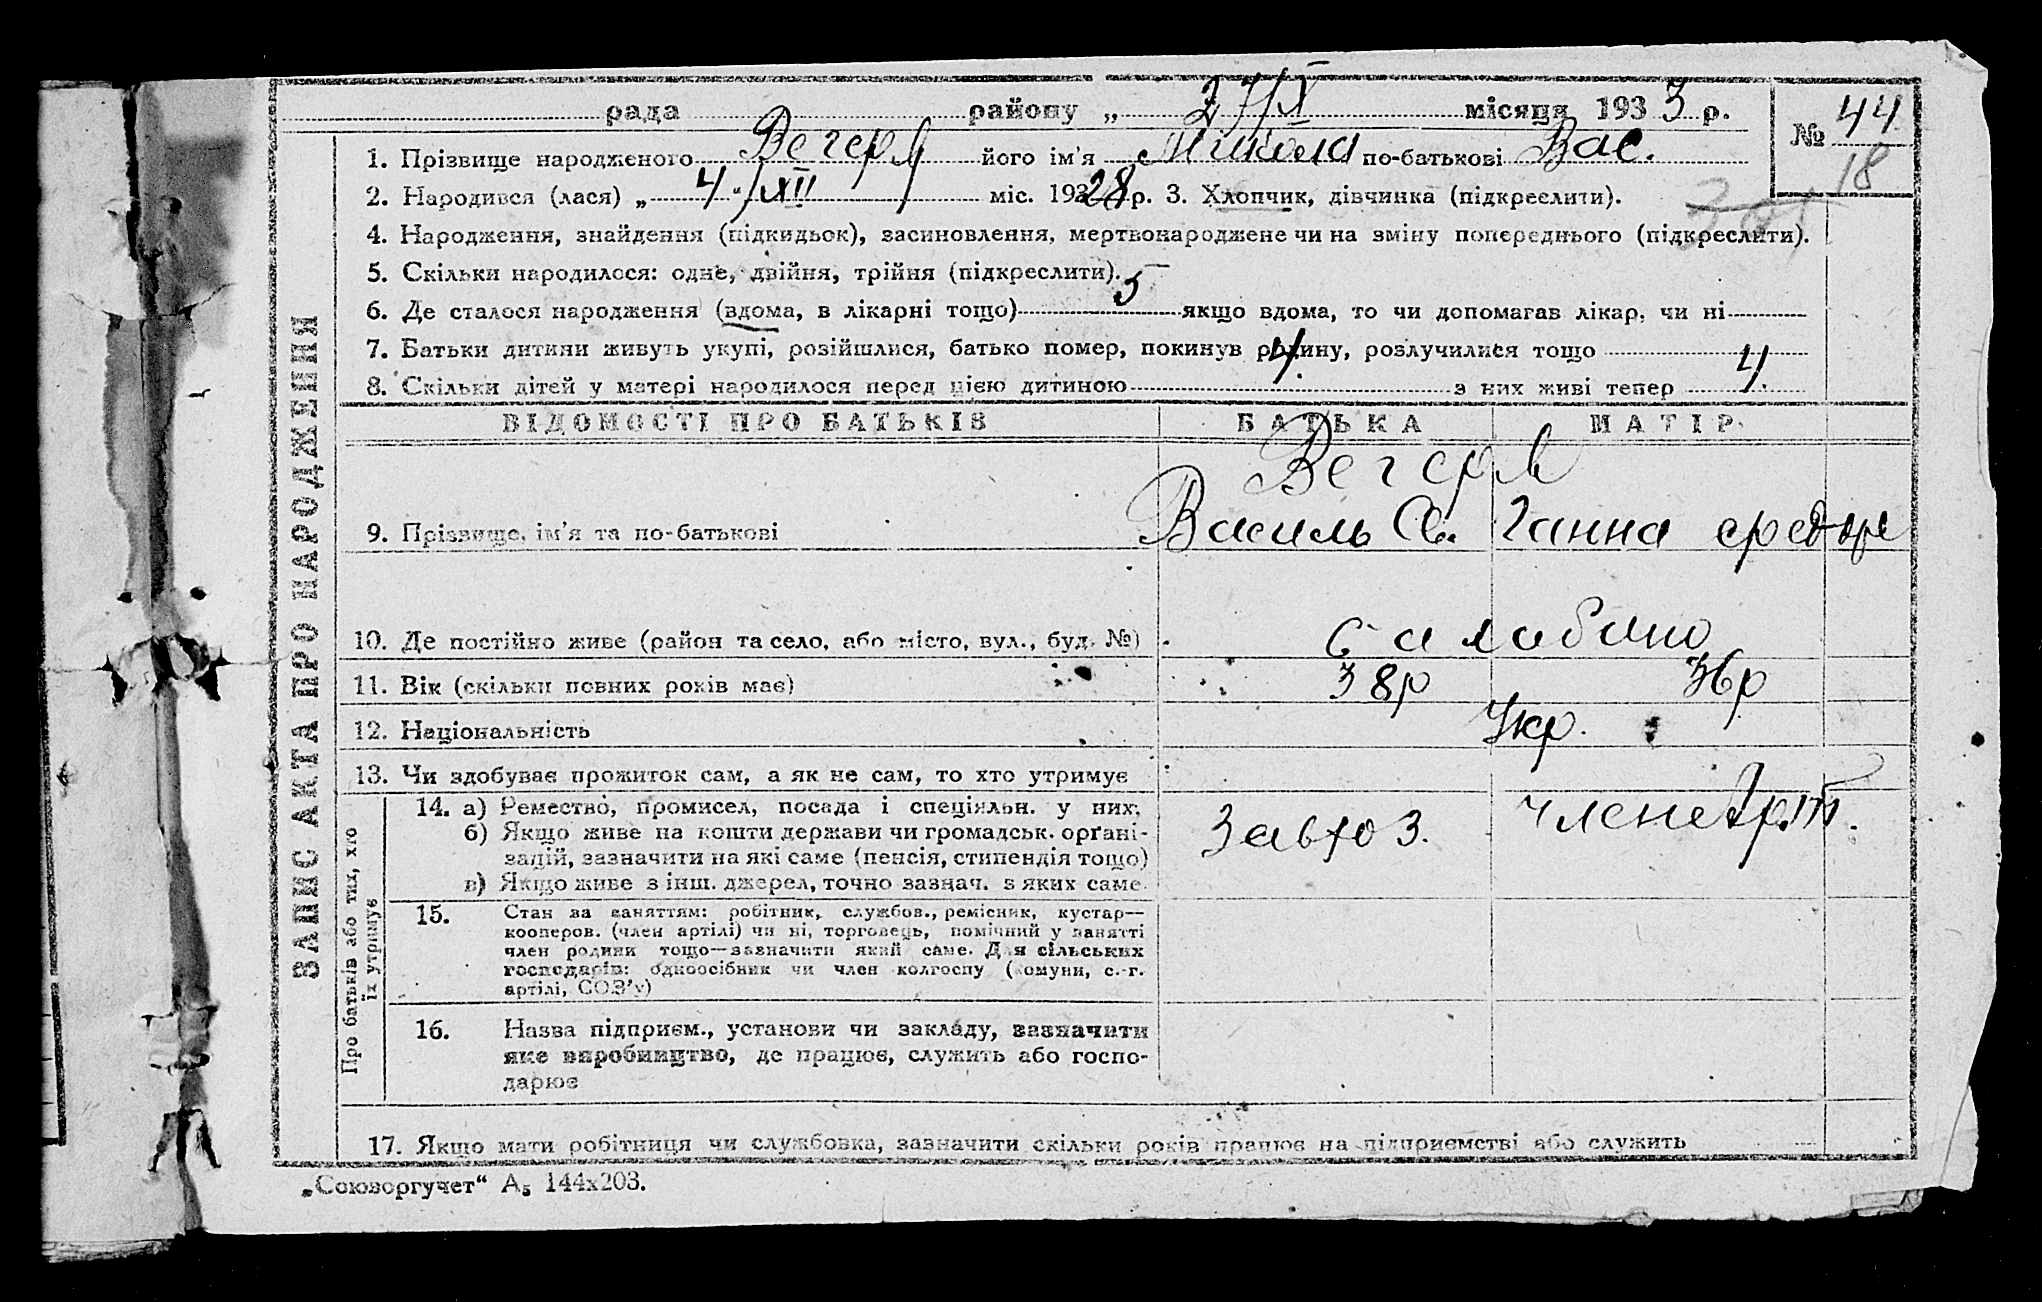 рада району „ 27/X місяця 1933 р.
№ 44
18
1. Прізвище народженого Вегеря його ім'я Микола по-батькові Вас.
2. Народився (лася) „ 4 " XII міс. 1928 р. 3. Хлопчик, дівчинка (підкреслити).
4. Народження, знайдення (підкидьок), засиновлення, мертвонароджене чи на зміну попереднього (підкреслити).
5. Скільки народилося: одне, двійня, трійня (підкреслити).
6. Де сталося народження (вдома, в лікарні тощо) 5 якщо вдома, то чи допомагав лікар, чи ні
7. Батьки дитини живуть укупі, розійшлися, батько помер, покинув родину, розлучилися тощо
8. Скільки дітей у матері народилося перед цією дитиною 4. з них живі тепер 4.
ЗАПИС АКТА ПРО НАРОДЖЕННЯ
ВІДОМОСТІ ПРО БАТЬКІВ БАТЬКА МАТІР
Вегеря
9. Прізвище, ім'я та по-батькові Василь Ганна
10. Де постійно живе (район та село, або місто, вул., буд. №)
11. Вік (скільки повних років має) 38р 36р
12. Національність Укр.
13. Чи здобуває прожиток сам, а як не сам, то хто утримує
Про батьків або тих, хто їх утримує
14. а) Ремество, промисел, посада і спеціяльн. у них;
б) Якщо живе на кошти держави чи громадськ. орґані-
зацій, зазначити на які саме (пенсія, стипендія тощо)
в) Якщо живе з інш. джерел, точно зазнач. з яких саме.
Завхоз.
15. Стан за заняттям: робітник, службов., ремісник, кустар—
кооперов. (член артілі) чи ні, торговець, помічний у занятті
член родини тощо—зазначити який саме. Для сільських
господарів: одноосібник чи член колгоспу (комуни, с.-г.
артілі, СОЗ'у)
16. Назва підприєм., установи чи закладу, зазначити
яке виробництво, де працює, служить або госпо-
дарює
17. Якщо мати робітниця чи службовка, зазначити скільки років працює на підприємстві або служить
„Союзоргучет“ А₅ 144х203.